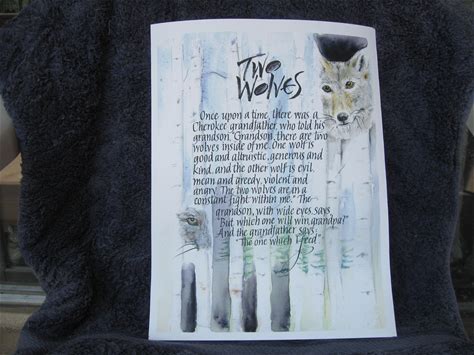 Two
Wolves
Once upon a time, there was a
Cherokee grandfather who told his
grandson, "Grandson, there are two
wolves inside of me. One wolf is
good and altruistic, generous and
kind, and the other wolf is evil,
mean and greedy, violent and
angry. The two wolves are in a
constant fight within me." The
grandson, with wide eyes, says
"But which one will win, grandpa?"
And the grandfather says,
"The one which I feed"